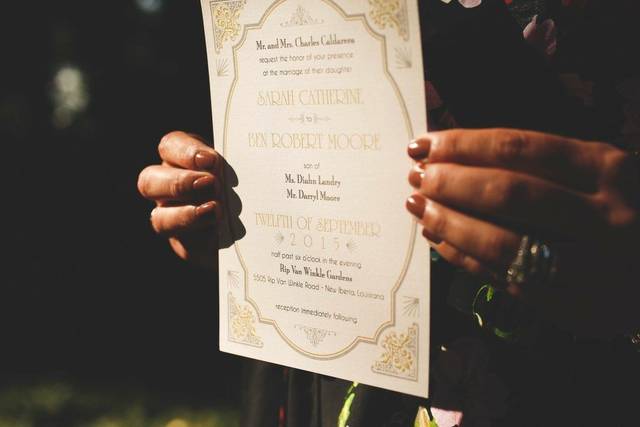 Mr. and Mrs. Charles Caldarera
request the honor of your presence
at the marriage of their daughter
SARAH CATHERINE
to
BEN ROBERT MOORE
son of
Ms. Diahn Landry
Mr. Darryl Moore
TWELFTH OF SEPTEMBER
2015
half past six o'clock in the evening
Rip Van Winkle Gardens
5505 Rip Van Winkle Road - New Iberia, Louisiana
reception immediately following